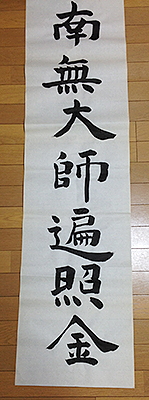 南無大師遍照金